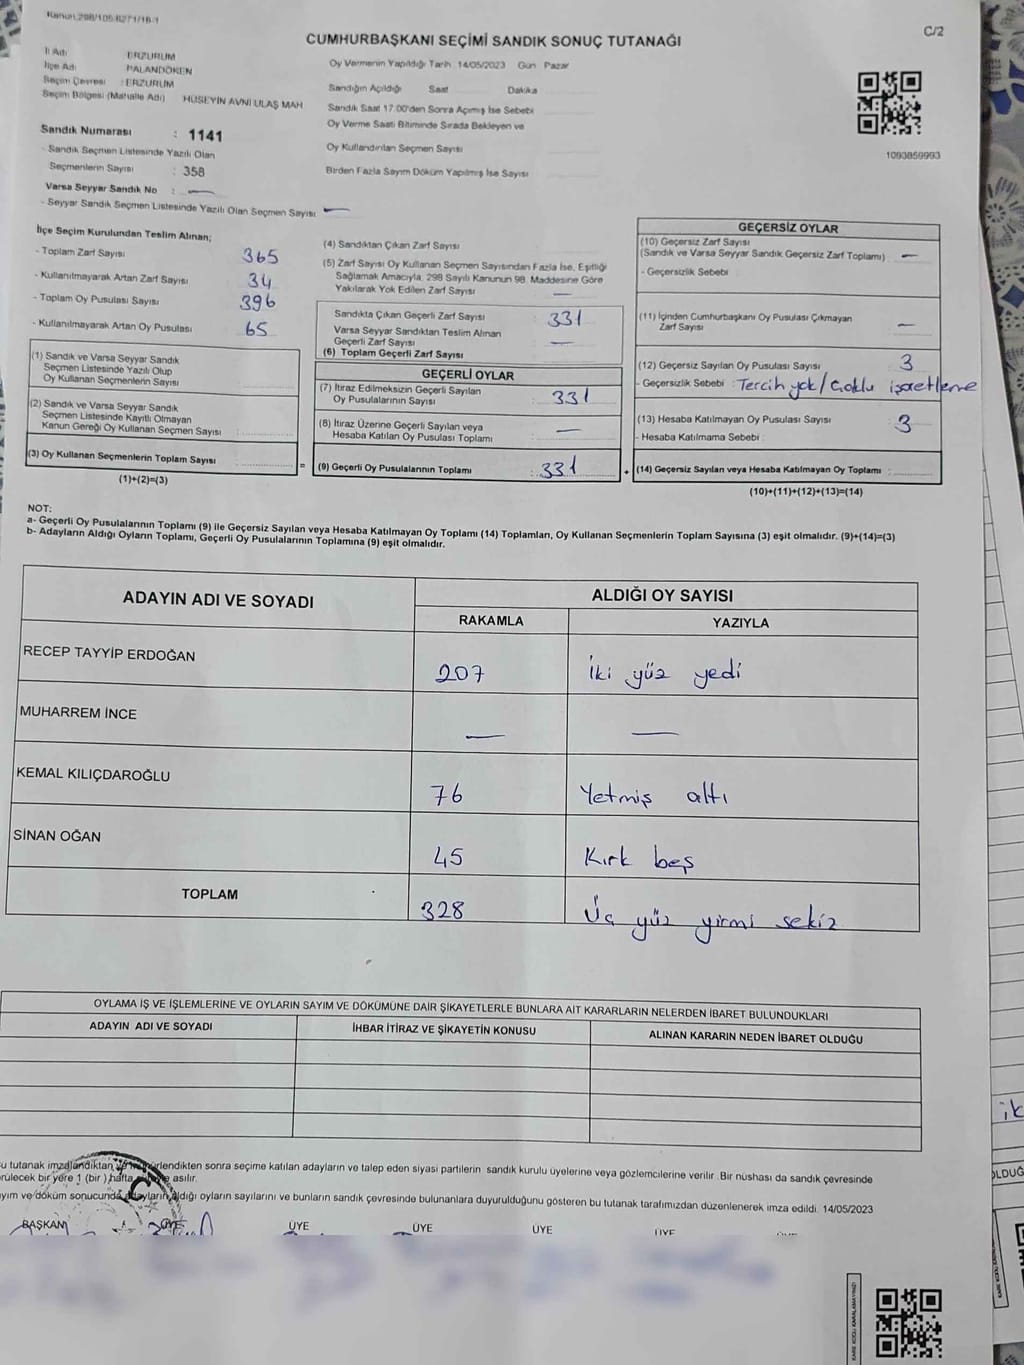 Kanun:298/105-8271/16-1
C/2
CUMHURBAŞKANI SEÇİMİ SANDIK SONUÇ TUTANAĞI
İl Adı : ERZURUM
İlçe Adı : PALANDÖKEN
Seçim Çevresi : ERZURUM
Seçim Bölgesi (Mahalle Adı) HÜSEYİN AVNİ ULAŞ MAH
Sandık Numarası : 1141
- Sandık Seçmen Listesinde Yazılı Olan
Seçmenlerin Sayısı : 358
Varsa Seyyar Sandık No : —
- Seyyar Sandık Seçmen Listesinde Yazılı Olan Seçmen Sayısı: —
Oy Vermenin Yapıldığı Tarih 14/05/2023 Gün Pazar
Sandığın Açıldığı Saat Dakika
Sandık Saat 17.00'den Sonra Açımış İse Sebebi
Oy Verme Saati Bitiminde Sırada Bekleyen ve
Oy Kullandırılan Seçmen Sayısı
Birden Fazla Sayım Döküm Yapılmış İse Sayısı
1093859993
İlçe Seçim Kurulundan Teslim Alınan;
- Toplam Zarf Sayısı 365
- Kullanılmayarak Artan Zarf Sayısı 34
- Toplam Oy Pusulası Sayısı 396
- Kullanılmayarak Artan Oy Pusulası 65
(1) Sandık ve Varsa Seyyar Sandık
Seçmen Listesinde Yazılı Olup
Oy Kullanan Seçmenlerin Sayısı
(2) Sandık ve Varsa Seyyar Sandık
Seçmen Listesinde Kayıtlı Olmayan
Kanun Gereği Oy Kullanan Seçmen Sayısı
(3) Oy Kullanan Seçmenlerin Toplam Sayısı :
(1)+(2)=(3)
=
(4) Sandıktan Çıkan Zarf Sayısı
(5) Zarf Sayısı Oy Kullanan Seçmen Sayısından Fazla İse, Eşitliği
Sağlamak Amacıyla, 298 Sayılı Kanunun 98. Maddesine Göre
Yakılarak Yok Edilen Zarf Sayısı —
Sandıkta Çıkan Geçerli Zarf Sayısı 331
Varsa Seyyar Sandıktan Teslim Alınan
Geçerli Zarf Sayısı —
(6) Toplam Geçerli Zarf Sayısı
GEÇERLİ OYLAR
(7) İtiraz Edilmeksizin Geçerli Sayılan
Oy Pusulalarının Sayısı 331
(8) İtiraz Üzerine Geçerli Sayılan veya
Hesaba Katılan Oy Pusulası Toplamı —
(9) Geçerli Oy Pusulalarının Toplamı : 331
+
GEÇERSİZ OYLAR
(10) Geçersiz Zarf Sayısı
(Sandık ve Varsa Seyyar Sandık Geçersiz Zarf Toplamı) —
- Geçersizlik Sebebi
(11) İçinden Cumhurbaşkanı Oy Pusulası Çıkmayan
Zarf Sayısı —
(12) Geçersiz Sayılan Oy Pusulası Sayısı 3
- Geçersizlik Sebebi : Tercih yok/Çoklu işaretleme
(13) Hesaba Katılmayan Oy Pusulası Sayısı 3
- Hesaba Katılmama Sebebi
(14) Geçersiz Sayılan veya Hesaba Katılmayan Oy Toplamı :
(10)+(11)+(12)+(13)=(14)
NOT:
a- Geçerli Oy Pusulalarının Toplamı (9) ile Geçersiz Sayılan veya Hesaba Katılmayan Oy Toplamı (14) Toplamları, Oy Kullanan Seçmenlerin Toplam Sayısına (3) eşit olmalıdır. (9)+(14)=(3)
b- Adayların Aldığı Oyların Toplamı, Geçerli Oy Pusulalarının Toplamına (9) eşit olmalıdır.
ADAYIN ADI VE SOYADI ALDIĞI OY SAYISI
RAKAMLA YAZIYLA
RECEP TAYYİP ERDOĞAN 207 İki yüz yedi
MUHARREM İNCE — —
KEMAL KILIÇDAROĞLU 76 Yetmiş altı
SİNAN OĞAN 45 Kırk beş
TOPLAM 328 Üç yüz yirmi sekiz
OYLAMA İŞ VE İŞLEMLERİNE VE OYLARIN SAYIM VE DÖKÜMÜNE DAİR ŞİKAYETLERLE BUNLARA AİT KARARLARIN NELERDEN İBARET BULUNDUKLARI
ADAYIN ADI VE SOYADI İHBAR İTİRAZ VE ŞİKAYETİN KONUSU ALINAN KARARIN NEDEN İBARET OLDUĞU
u tutanak imzalandıktan ve mühürlendikten sonra seçime katılan adayların ve talep eden siyasi partilerin sandık kurulu üyelerine veya gözlemcilerine verilir. Bir nüshası da sandık çevresinde
rülecek bir yere 1 (bir) hafta asılır.
yım ve döküm sonucunda adayların aldığı oyların sayılarını ve bunların sandık çevresinde bulunanlara duyurulduğunu gösteren bu tutanak tarafımızdan düzenlenerek imza edildi. 14/05/2023
BAŞKAN ÜYE ÜYE ÜYE ÜYE ÜYE